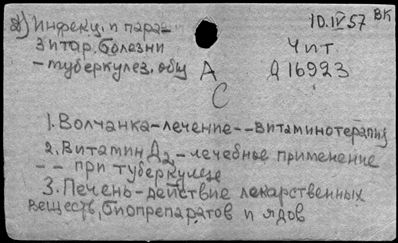 2) Инфекц. и пара-
зитар. болезни
- туберкулез. общ
А
С
10.IV 57
ВК
Чит.
Q 16923
1. Волчанка - лечение - - витаминотерапия
2. Витамин Д2 - лечебное применение
- - при туберкулезе
3. Печень - действие лекарственных
веществ, биопрепаратов и ядов